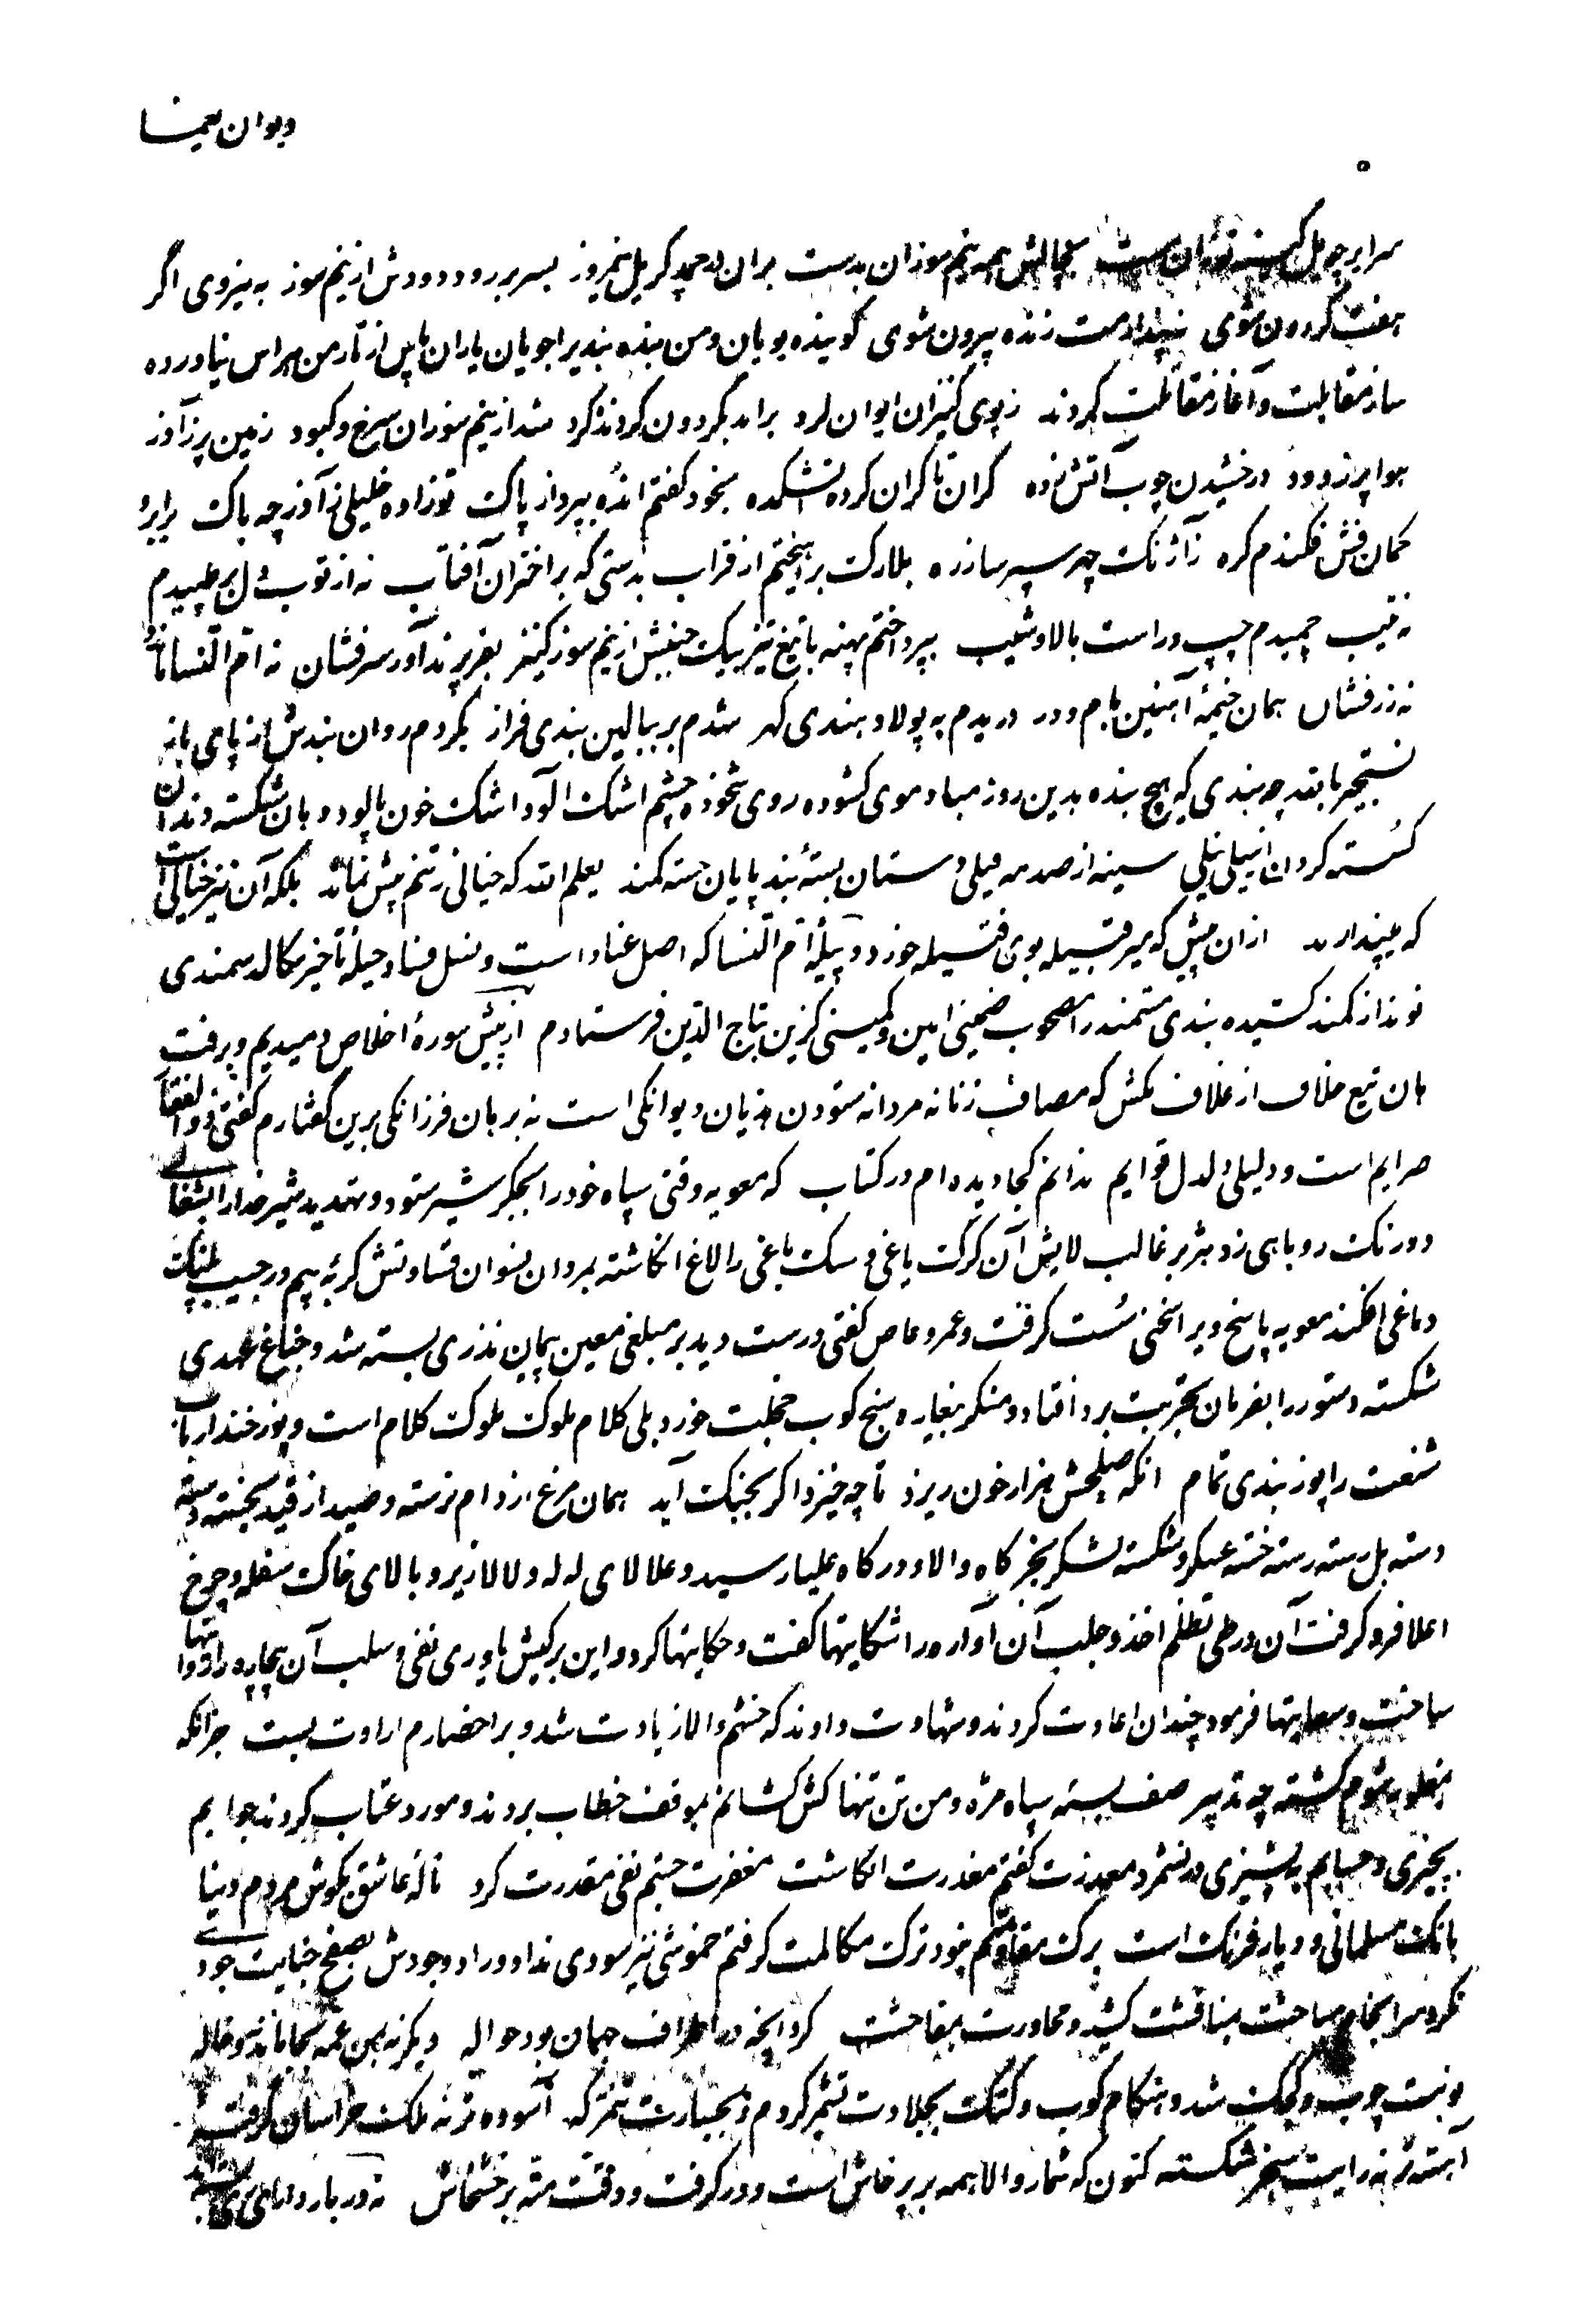 دیوان یغما
۵
سرابر چو پل کینه توشان مست سگالش همه نیم سوزان بدست بران بر حمید کر یل نیمروز بسر بر رود دودش از نیم سوز به نیروی اگر
هفت گردون شوی نپندارمت زنده بیرون شوی گوینده پویان و من بنده بندیرا جویان یاران ناپس از تار من هراس نیاورده
ساز مقابلت و آغاز مقاتلت کردند ز پوی کنیزان ایوان نورد برآمد بگردون گردنده گرد شد از نیم سوزان سرخ و کبود زمین پر ز آذر
هوا پر ز دود درخشیدن چوب آتش زده کران تا کران کرده آتشکده بخود گفتم اندُه بپرداز پاک تو زاده خلیلی ز آذر چه باک برابرو
کمان فش فکندم کره ز آژنگ چهر سپر ساز زه بلارک برآهیختم از قراب بدستی که بر اختران آفتاب نه از توب دل بر طپیدم
نه تیب چمیدم چپ و راست بالا و شیب بپرداختم پهنه با تیغ تیز بیک جنبش از نیم سوز کنیز بفر پرندآور سرفشان نه ام النسا ماند
نه زرفشان همان خیمهٔ آهنین بام و در دریدم به پولاد هندی گهر شدم بر ببالین بندی فراز بکردم روان بندش از پای باز
نستجیر بالله چه بندی که هیچ بنده بدین روز مباد موی کشوده روی شخوده چشم اشک آلود اشک خون پالود دهان شکسته دندان
کسسته گردن از سیلی نیلی سینه از صدمه فیلی دستان بستهٔ بند پایان خسته کمند یعلم الله که خیالی ز تنم بیش نماند بلکه آن نیز خیالی است
که میپندارند ازان پیش که میر قبیله بوی فتیله خورد و پیلهٔ ام النسا که اصل عناد است و نسل فساد حیلهٔ تاخیر سکالد سمندی
نوند از کمند کشیده بندی مستمند را مصحوب ضمینی امین و کمیسی گزین بتاج الدین فرستادم از پیش سورهٔ اخلاص دمیدیم و برفت
هان تیغ خلاف از غلاف مکش که مصاف زنانه مردانه ستودن هذیان دیوانگی است نه برهان فرزانگی برین گفتارم کفتی ذوالفقار
صرایم است و دلیلی دلدل قوایم ندانم کجا دیده ام در کتاب که معویه وقتی سپاه خود را بجگر شیر ستود و تهدید شیر خدا را بشغالی
دو رنگ روباهی زد هژبر غالب لابش آن گرگ یاغی و سگ باغی را لاغ انگاشته بمردان نسوان قساوتش گربهٔ بیم در جیب پلنگ
دماغی افکند معویه پاسخ ویرا سخنی سُست گرفت و عمرو عاص کفتی درست دید بر مبلغی معین پیمان نذری بسته شد و جناغ عهدی
شکسته دستور را بفرمان تجربیت برد افتاد و منکر بغیاره سنج کوب خجلت خورد بلی کلام ملوک ملوک کلام است و پوزخند ارباب
شنعت را پوزبندی تمام انکه صلحش هزار خون ریزد تا چه خیزد اکر بجنگ آید همان مرغ از دام نرسته و صید از قید نجسته دسته
دسته بل رسته رسته خسته عسکر و شکسته لشکر بخر کاه والا و درکاه علیا رسید و علالای له له و لالا زیر و بالای خاک سفله و چرخ
اعلا فرو گرفت آن در طی تظلم اخذ و جلب آن آواره را شکایتها کفت و حکایتها کرد و این بر کیش یاوری نفی و سلب آن بیچاره را روایتها
ساخت و سعایتها فرمود چندان اعادت کردند و شهادت دادند که خشم والا زیادت شد و بر احضارم ارادت بست جز آنکه
مغلوبه شوم کشته چه تدبیر صف بسته سپاه مژه و من تن تنها کش کشانم بموقف خطاب بردند و مورد عتاب کردند جوابم
بچیزی و حسابم به پشیزی نشمرد معذرت کفتم مغدرت انکاشت مغفرت جستم نفی مقدرت کرد نالهٔ عاشق بکوش مردم دنیا
بانک مسلمانی و دیار فرنک است برک مقاومتم نبود ترک مکالمت کرفتم خموشی نیز سودی نداد و راد وجودش بصفح جنایت جودی
نکرد سرانجام مباحثت بمناقشت کشید و محاورت بمفاحشت کرد انچه در اطراف جهان بود حواله دیگر نه بمن عمه بجا ماند و نه خاله
نوبت چوب و کتک شد و هنگام کوب و کتک بجلادت تشمر کردم و بجسارت تنمر که آسوده تر نه ملک خراسان گرفته
آهسته تر نه رایت سنجر شکسته کنون که شمار والا همه بر پرخاش است و در کرفت و دقت مته بر خشخاش نه دربار دارای